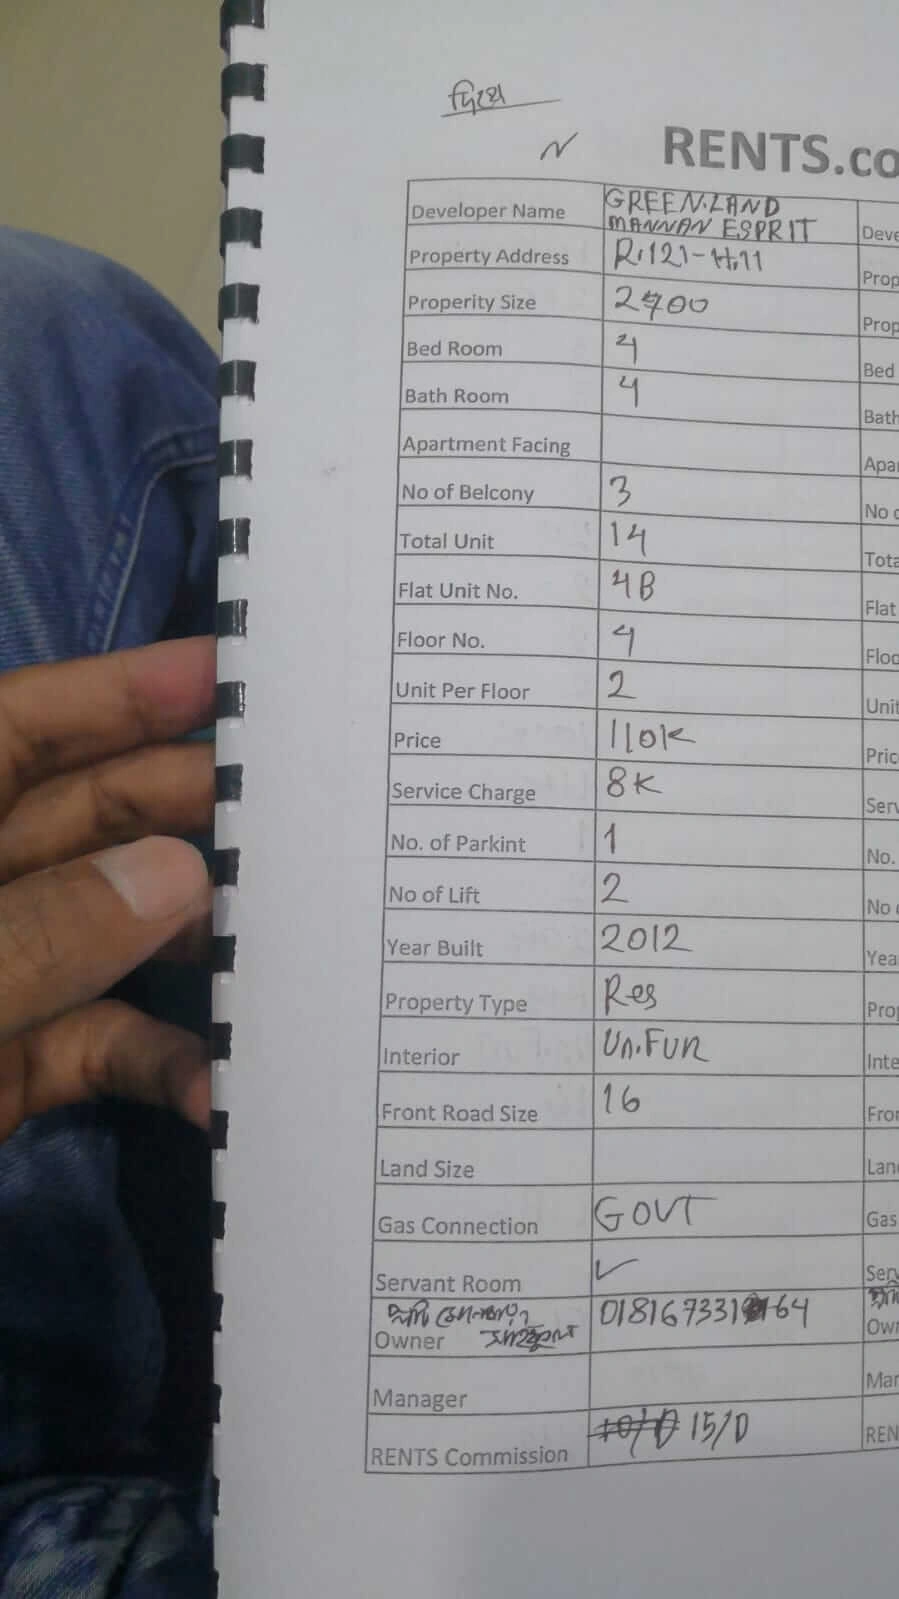 RENTS.co
Developer Name GREEN.LAND
MANNAN ESPRIT Deve
Property Address R.121-H.11 Prop
Properity Size 2700 Prop
Bed Room 4 Bed
Bath Room 4 Bath
Apartment Facing Apar
No of Belcony 3 No o
Total Unit 14 Tota
Flat Unit No. 4B Flat
Floor No. 4 Floo
Unit Per Floor 2 Unit
Price 110K Pric
Service Charge 8K Serv
No. of Parkint 1 No.
No of Lift 2 No o
Year Built 2012 Yea
Property Type Res Prop
Interior Un.FUR Inte
Front Road Size 16 Fron
Land Size Lan
Gas Connection GOVT Gas
Servant Room ✓ Serv
Owner Own
Manager Mar
RENTS Commission 15/D REN